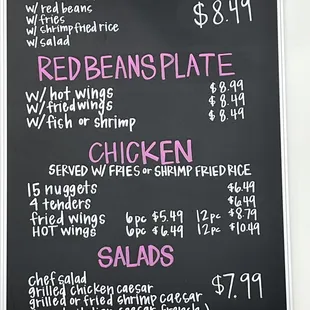 w/ red beans
w/ fries $8.49
w/ shrimp fried rice
w/ salad
RED BEANS PLATE
w/ hot wings $8.99
w/ fried wings $8.49
w/ fish or shrimp $8.49
CHICKEN
SERVED W/ FRIES or SHRIMP FRIED RICE
15 nuggets $6.49
4 tenders $6.49
fried wings 6pc $5.49 12pc $8.79
HOT wings 6pc $6.49 12pc $10.49
SALADS
chef salad
grilled chicken caesar $7.99
grilled or fried shrimp caesar